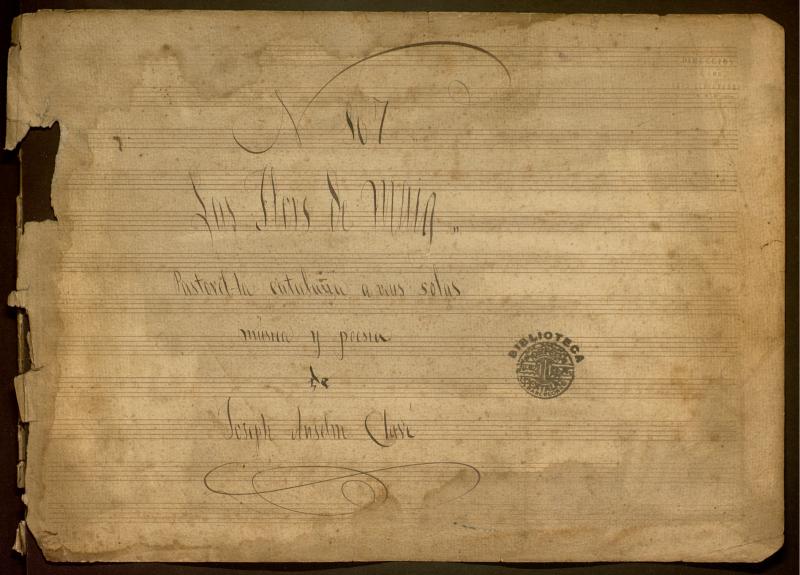 N 867
Las Flors de Maig
Pastorel-la catalana a veus solas
música y poesia
de
Joseph Anselm Clavé
BIBLIOTECA